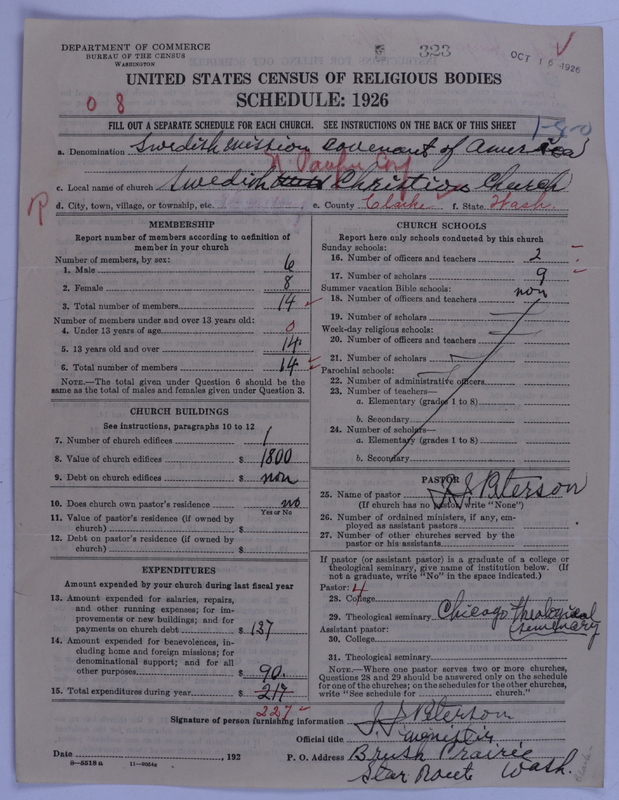 DEPARTMENT OF COMMERCE
BUREAU OF THE CENSUS
WASHINGTON
323
OCT 16 1926
UNITED STATES CENSUS OF RELIGIOUS BODIES
SCHEDULE: 1926
0 8
FILL OUT A SEPARATE SCHEDULE FOR EACH CHURCH. SEE INSTRUCTIONS ON THE BACK OF THIS SHEET
1-3-0
a. Denomination Swedish mission covenant of America
c. Local name of church Swedish Christian Church
d. City, town, village, or township, etc. e. County Clarke f. State Wash.
MEMBERSHIP
Report number of members according to definition of member in your church
Number of members, by sex:
1. Male 6
2. Female 8
3. Total number of members 14
Number of members under and over 13 years old:
4. Under 13 years of age 0
5. 13 years old and over 14
6. Total number of members 14
NOTE.—The total given under Question 6 should be the same as the total of males and females given under Question 3.
CHURCH BUILDINGS
See instructions, paragraphs 10 to 12
7. Number of church edifices 1
8. Value of church edifices $ 1800
9. Debt on church edifices $ non
10. Does church own pastor's residence no
Yes or No
11. Value of pastor's residence (if owned by church) $
12. Debt on pastor's residence (if owned by church) $
EXPENDITURES
Amount expended by your church during last fiscal year
13. Amount expended for salaries, repairs, and other running expenses; for improvements or new buildings; and for payments on church debt $ 137
14. Amount expended for benevolences, including home and foreign missions; for denominational support; and for all other purposes $ 90.
15. Total expenditures during year $ 217
227
CHURCH SCHOOLS
Report here only schools conducted by this church
Sunday schools:
16. Number of officers and teachers 2
17. Number of scholars 9
Summer vacation Bible schools: non
18. Number of officers and teachers
19. Number of scholars
Week-day religious schools:
20. Number of officers and teachers
21. Number of scholars
Parochial schools:
22. Number of administrative officers
23. Number of teachers—
a. Elementary (grades 1 to 8)
b. Secondary
24. Number of scholars—
a. Elementary (grades 1 to 8)
b. Secondary
PASTOR
25. Name of pastor J. S Peterson
(If church has no pastor, write "None")
26. Number of ordained ministers, if any, employed as assistant pastors
27. Number of other churches served by the pastor or his assistants
If pastor (or assistant pastor) is a graduate of a college or theological seminary, give name of institution below. (If not a graduate, write "No" in the space indicated.)
Pastor: 4
28. College
29. Theological seminary Chicago Theological Semenary
Assistant pastor:
30. College
31. Theological seminary
NOTE.—Where one pastor serves two or more churches, Questions 28 and 29 should be answered only on the schedule for one of the churches; on the schedules for the other churches, write "See schedule for church."
Signature of person furnishing information J. S Peterson
Official title minister
Date , 192 P. O. Address Brush Prairie
Star Route Wash.
8—5518 a 11—9054a